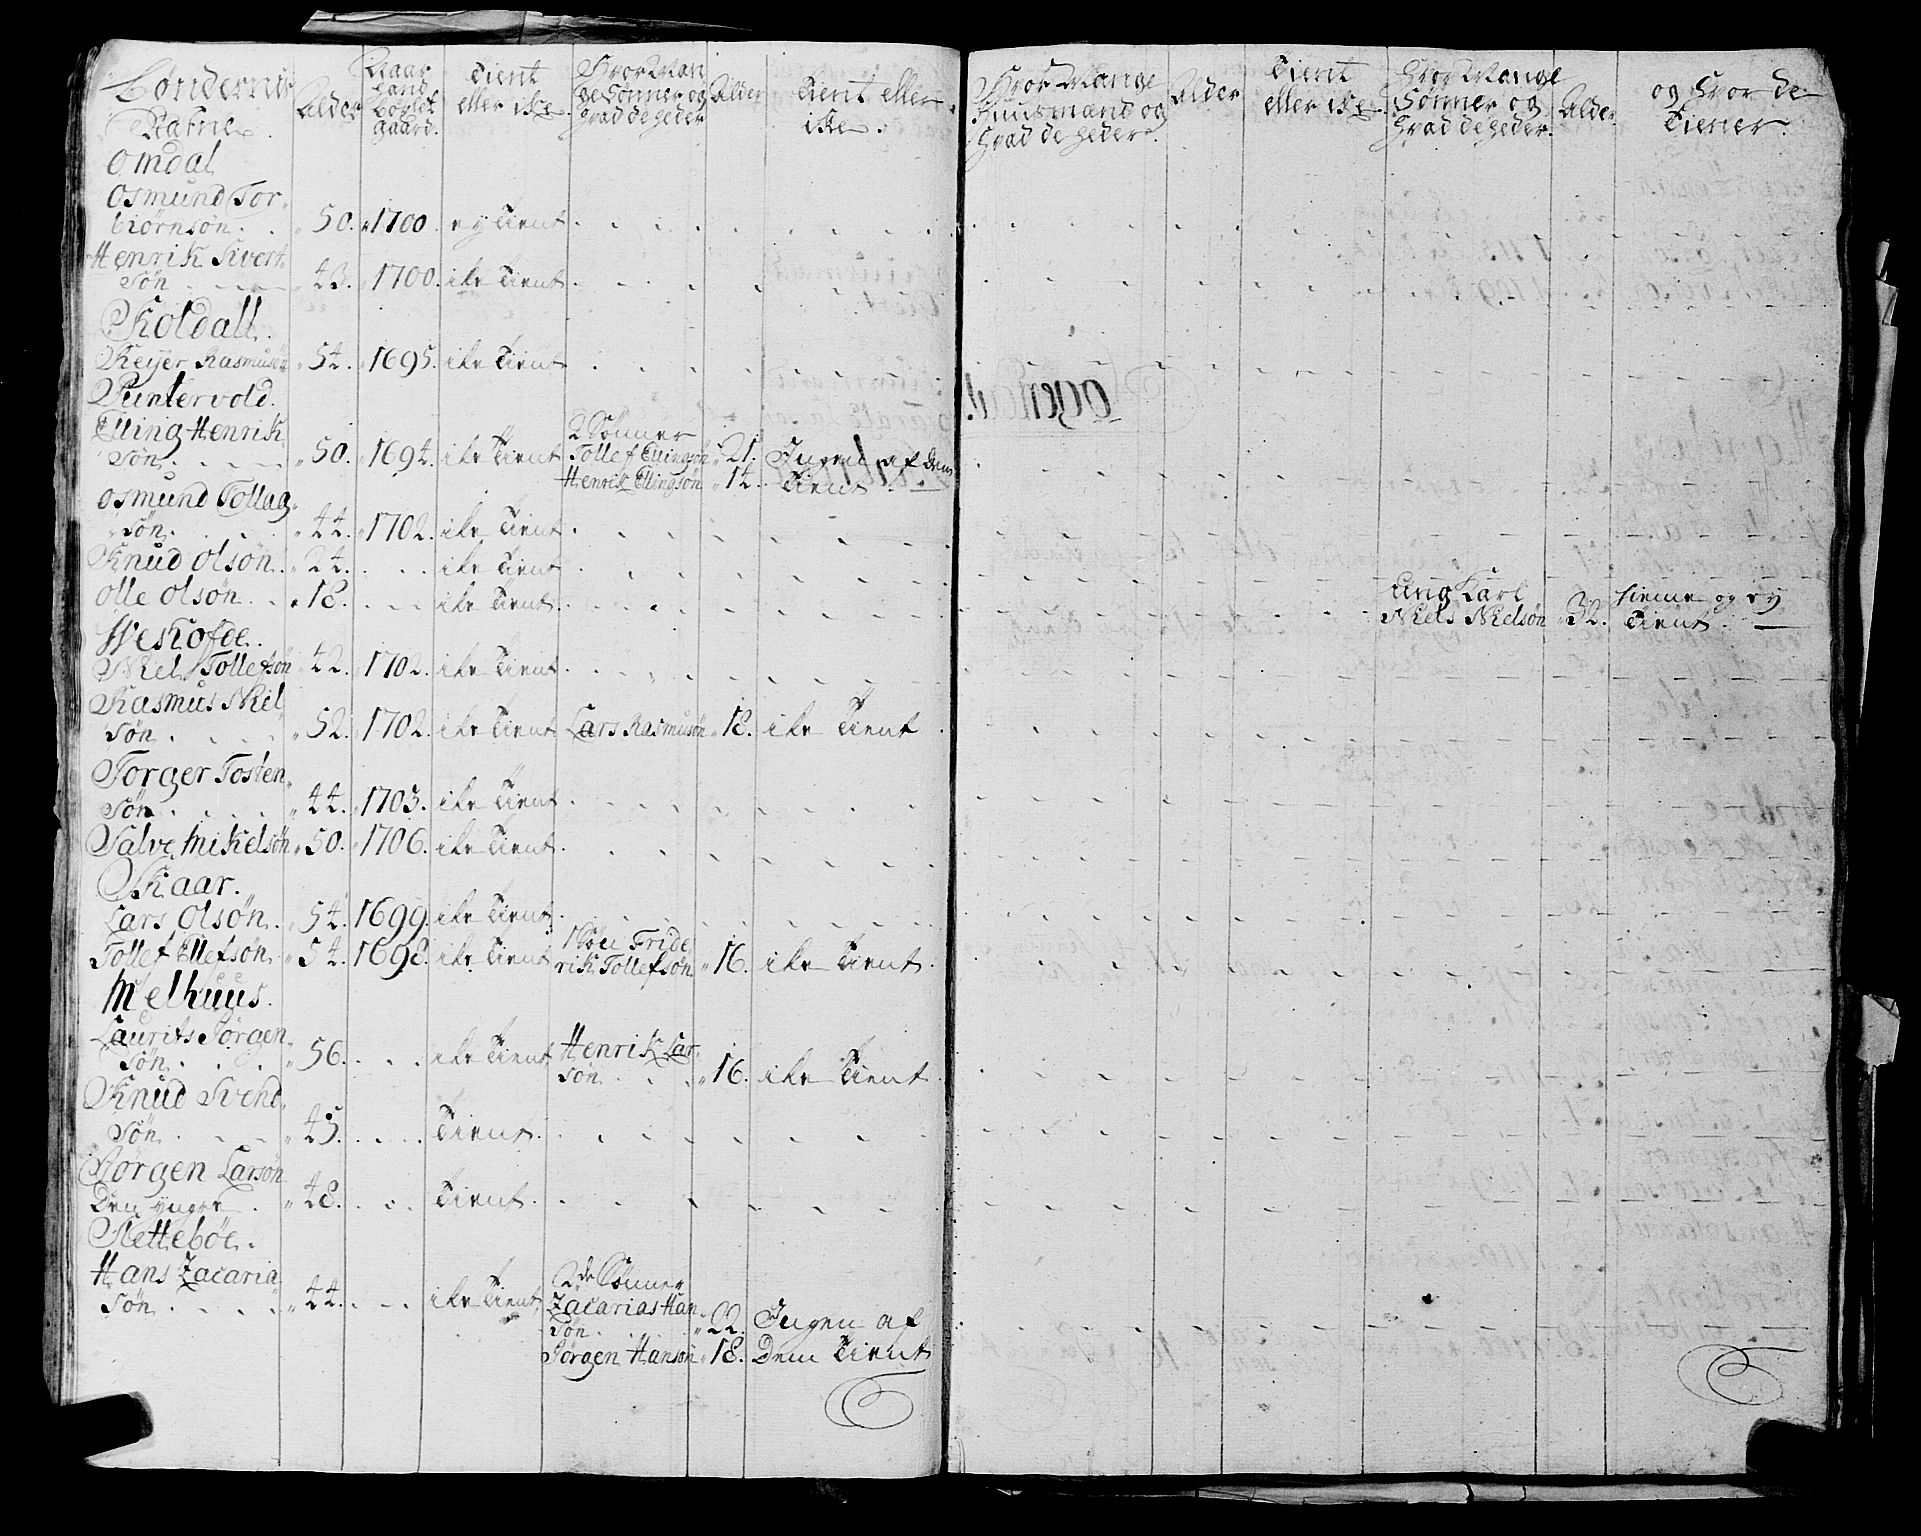 Bøndernis Nafne. Alder Naar hand bögslet gaard. tient eller ike. Hvor Man
ge Sønner og hvad de heder Alder tient eller ike.
Hvor Mange Huusmænd og hvad de heder. Alder tient eller ike. Hvor Mange Sønner og hvad de heder. Alder. og hvor de tiener.
Omdal
Osmund Tor-
biørnsøn. 50. 1700. ey tient
Henrik Sivert
Søn 43. 1700. ike tient
Koldall.
Reijer Rasmusøn 54. 1695. ike tient
Puntervold.
Elling Henrik 2 Sönner
Søn 50. 1694. ike tient Tollef Ellingsøn 21. Ingen af dem
Henrik Ellingsøn 14. tient
Osmund Tollag
Søn 44. 1702. ike tient
Knud Olsøn 24. ike tient
Olle Olsøn 18. ike tient Ung Karl hieme og ey
Niels Nielsøn 32. tient.
Weshofde.
Niels Tollefsøn 42. 1702. ike tient
Rasmus Niel
Søn 52. 1702. ike tient Lars Rasmusøn 18. ike tient
Torger Tosten
Søn 44. 1703. ike tient
Salve Mikelsøn 50. 1706. ike tient
Skaar.
Lars Olsøn 54. 1699. ike tient
Tollef Ellefsøn 54. 1698. ike tient 1 Søn Fride
rik Tollefsøn 16. ike tient
Melhuus.
Laurits Jørgen
Søn 56. ike tient Henrik Lar
søn 16. ike tient
Knud Svend
Søn 45. tient
Jörgen Larsøn
Den yngre 48. tient
Slettebøe.
Hans Zacaria 2de Sönner
Søn 44. ike tient Zacarias Han
Søn 22. Ingen af
Jørgen Hansøn 18. Dem tient